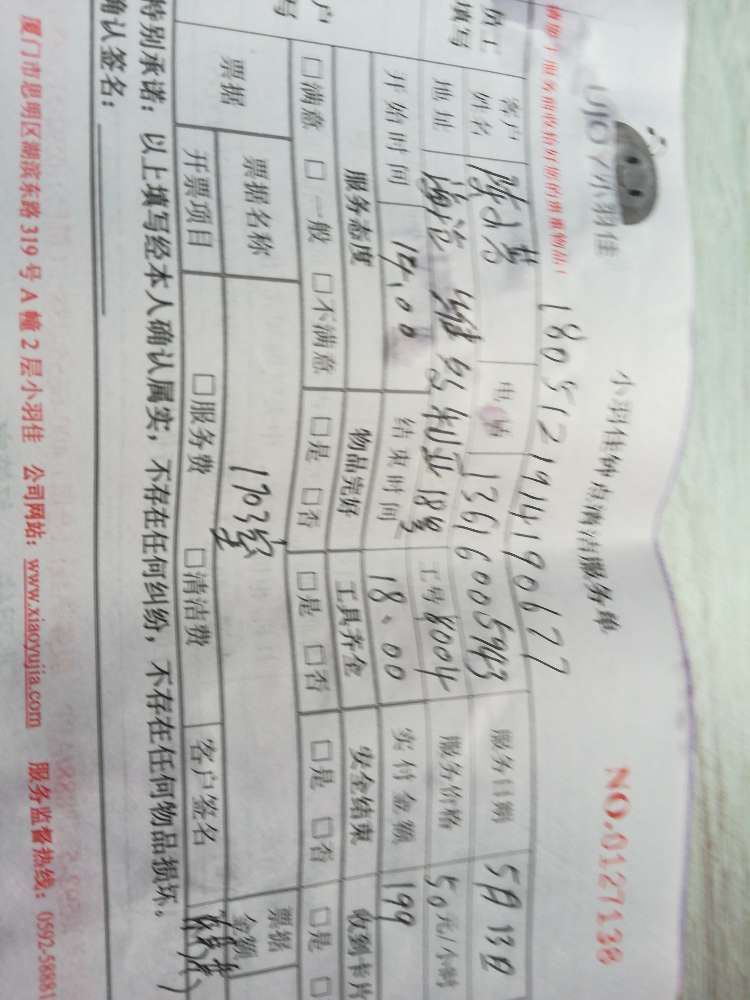 小羽佳
小羽佳钟点清洁服务单
NO.0127138
180512191419067 7
客户姓名 陈小英 电话 13616005943 服务日期 5月13日
地址 海沧 维多利亚18号 工号 8004 服务价格 50元/小时
开始时间 14.00 结束时间 18.00 实付金额 199
服务态度 物品完好 工具齐全 安全结束 收到卡片
□满意 □一般 □不满意 □是 □否 □是 □否 □是 □否 □是
票据 票据名称 1703室 票据金额
开票项目 □服务费 □清洁费 客户签名
特别承诺：以上填写经本人确认属实，不存在任何纠纷，不存在任何物品损坏。
确认签名：
厦门市思明区湖滨东路 319 号 A 幢 2 层小羽佳 公司网站：www.xiaoyujia.com 服务监督热线：0592-58881